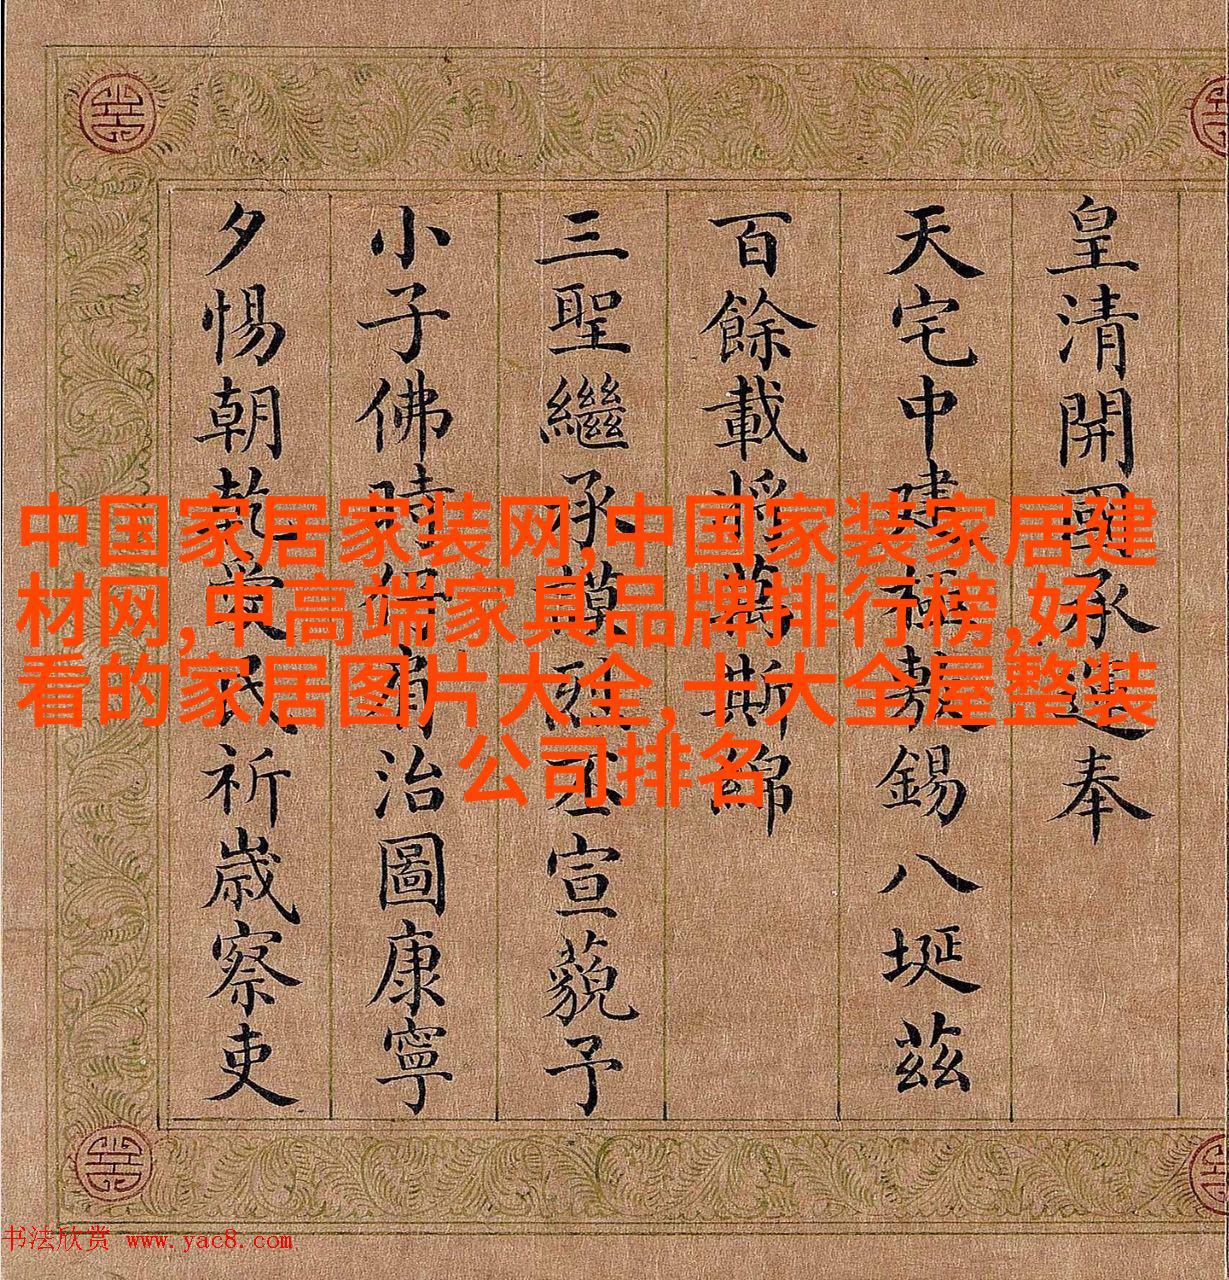 皇清開國承運奉
天宅中建極敷錫八埏茲
百餘載將萬斯綿
三聖繼承謨烈丕宣藐予
小子佛時仔肩治圖康寧
夕惕朝乾愛民祈歲察吏
中国家居家装网,中国家装家居建
材网,中高端家具品牌排行榜,好
看的家居图片大全,十大全屋整装
公司排名
书法欣赏 www.yac8.com